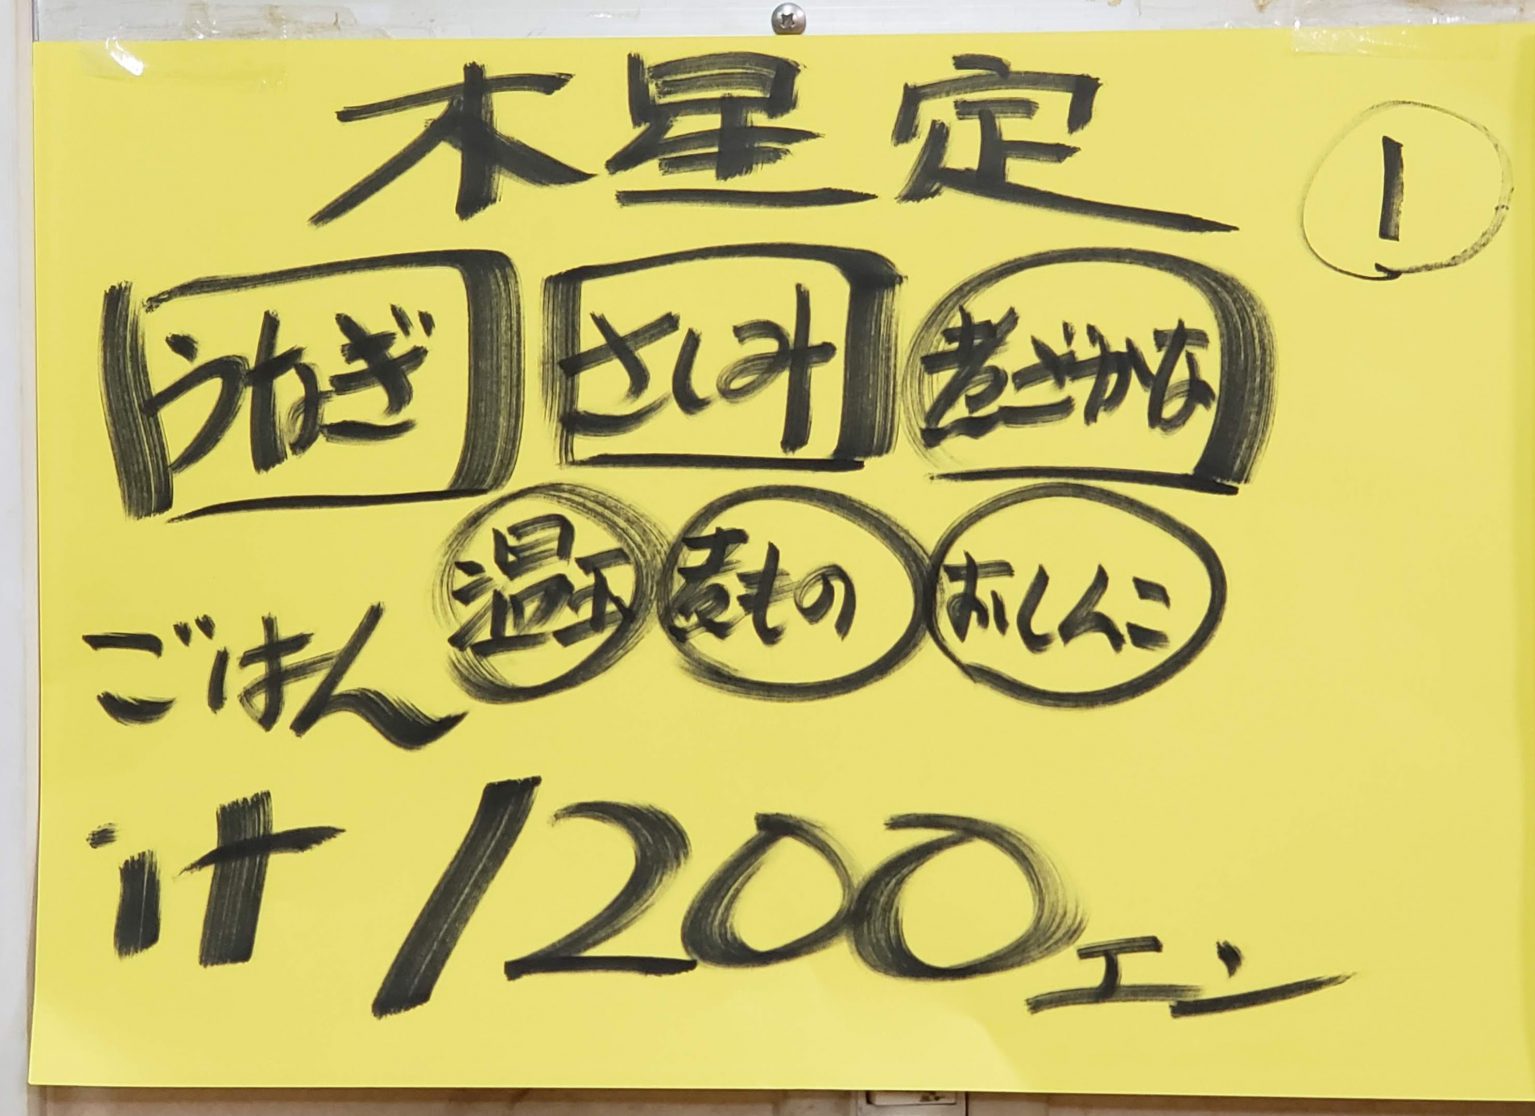 木星定 ①
うなぎ さしみ 煮ざかな
温玉 煮もの おしんこ
ごはん
汁 1200エン